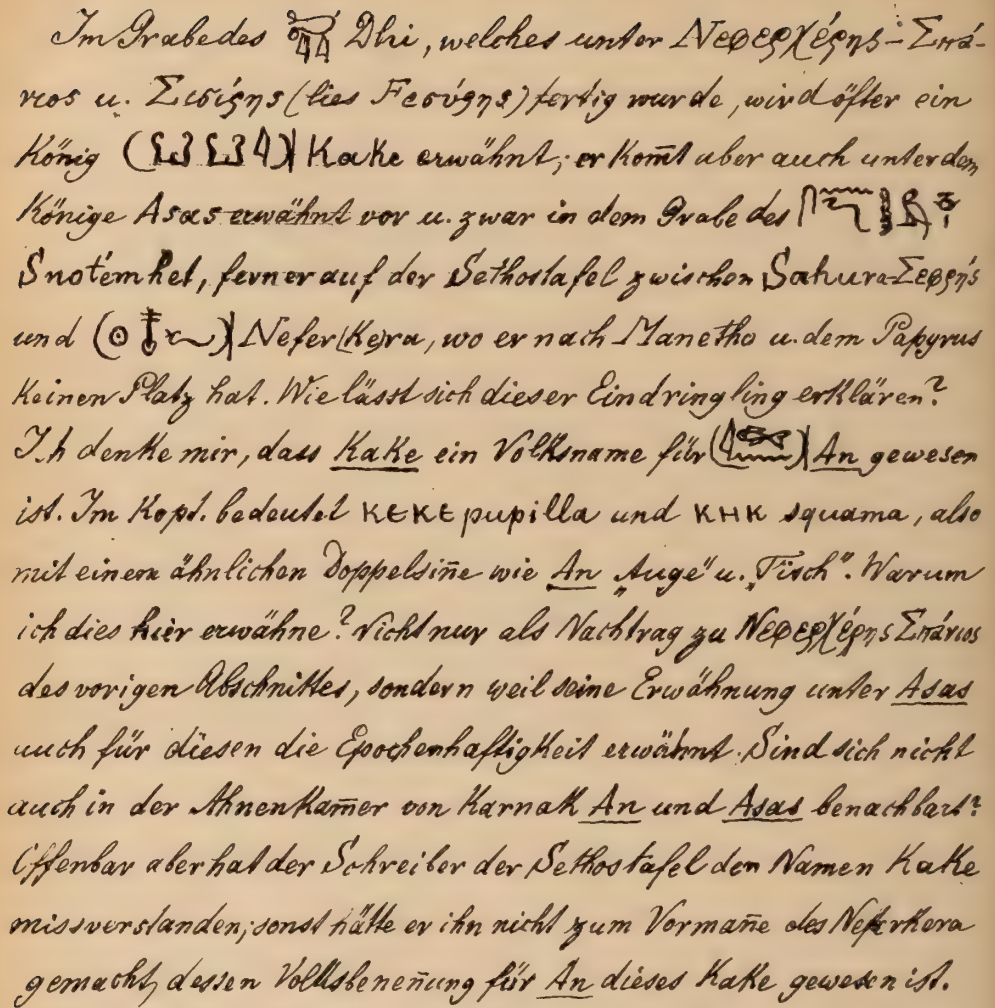 Im Grabe des Dhi, welches unter Νεφερχέρης-Σπά-
νιος u. Σισίρης (lies Fεσύρης) fertig wurde, wird öfter ein
König Kake erwähnt; er kom̅t aber auch unter dem
Könige Asas erwähnt vor u. zwar in dem Grabe des
Snotémhet, ferner auf der Sethostafel zwischen Sahura-Σεφρής
und Nefer(Ke)ra, wo er nach Manetho u. dem Papyrus
keinen Platz hat. Wie lässt sich dieser Eindringling erklären?
Ich denke mir, dass Kake ein Volksname für An gewesen
ist. Im Kopt. bedeutet ⲕⲉⲕⲉ pupilla und ⲕⲏⲕ squama, also
mit einem ähnlichen Doppelsin̅e wie An „Auge" u. „Fisch". Warum
ich dies hier erwähne? Nicht nur als Nachtrag zu Νεφερχέρης Σπάνιος
des vorigen Abschnittes, sondern weil seine Erwähnung unter Asas
auch für diesen die Epochenhaftigkeit erwähnt. Sind sich nicht
auch in der Ahnenkam̅er von Karnak An und Asas benachbart?
Offenbar aber hat der Schreiber der Sethostafel den Namen Kake
missverstanden; sonst hätte er ihn nicht zum Vorman̅e des Neferkera
gemacht, dessen Volksbenen̅ung für An dieses Kake gewesen ist.